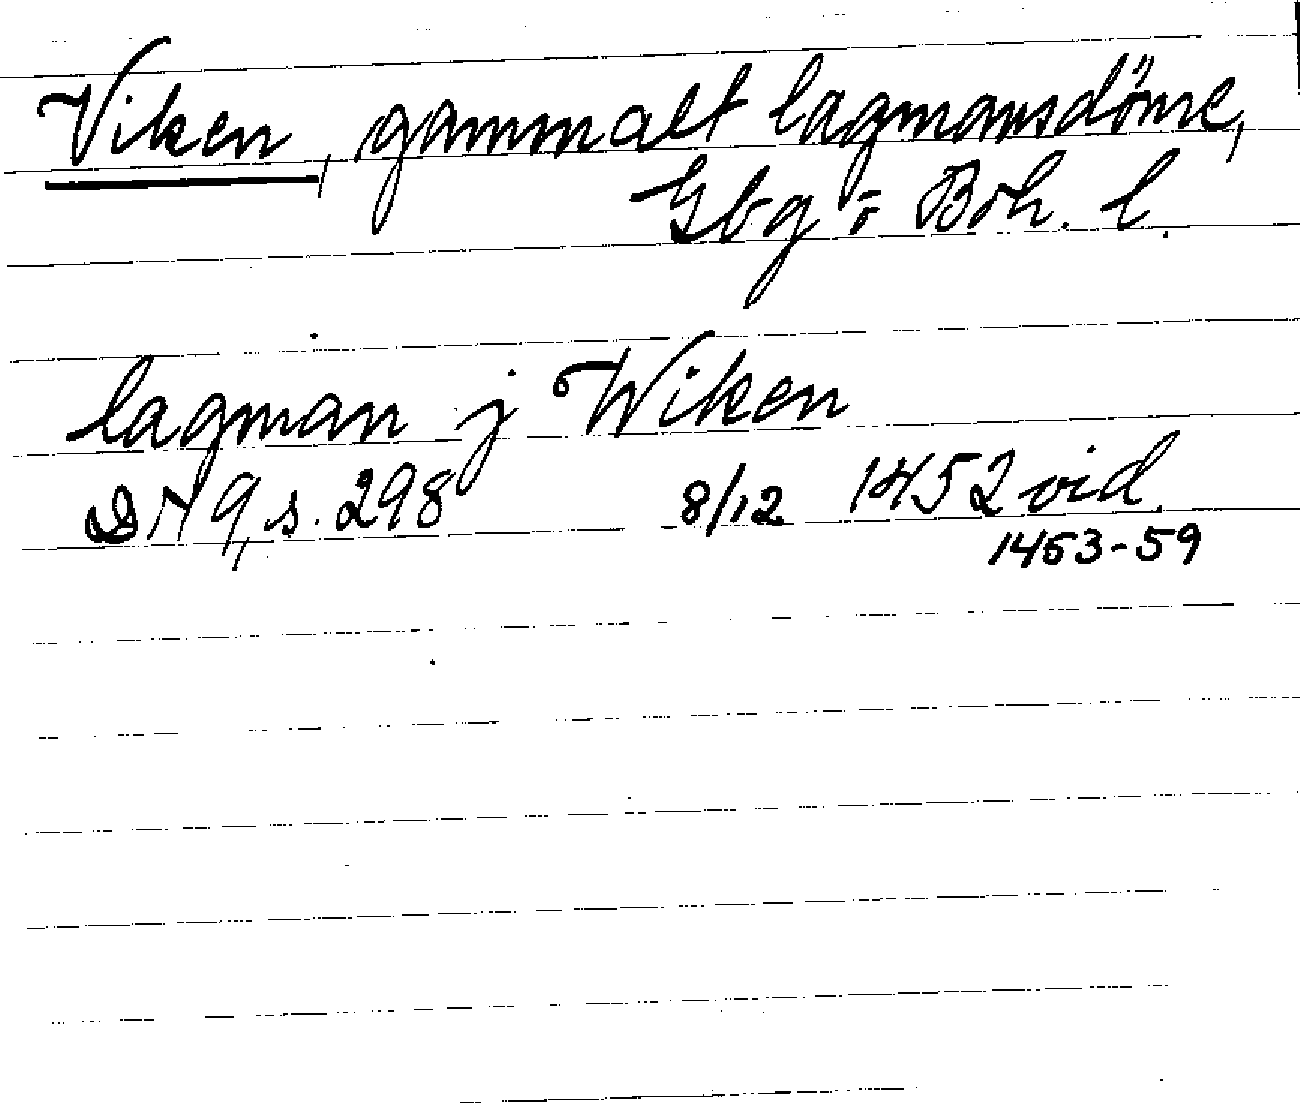 Viken, gammalt lagmansdöme,
Gbg o Boh. l.
lagman j Wiken
DN 9, s. 298 8/12 1452 vid.
1453-59